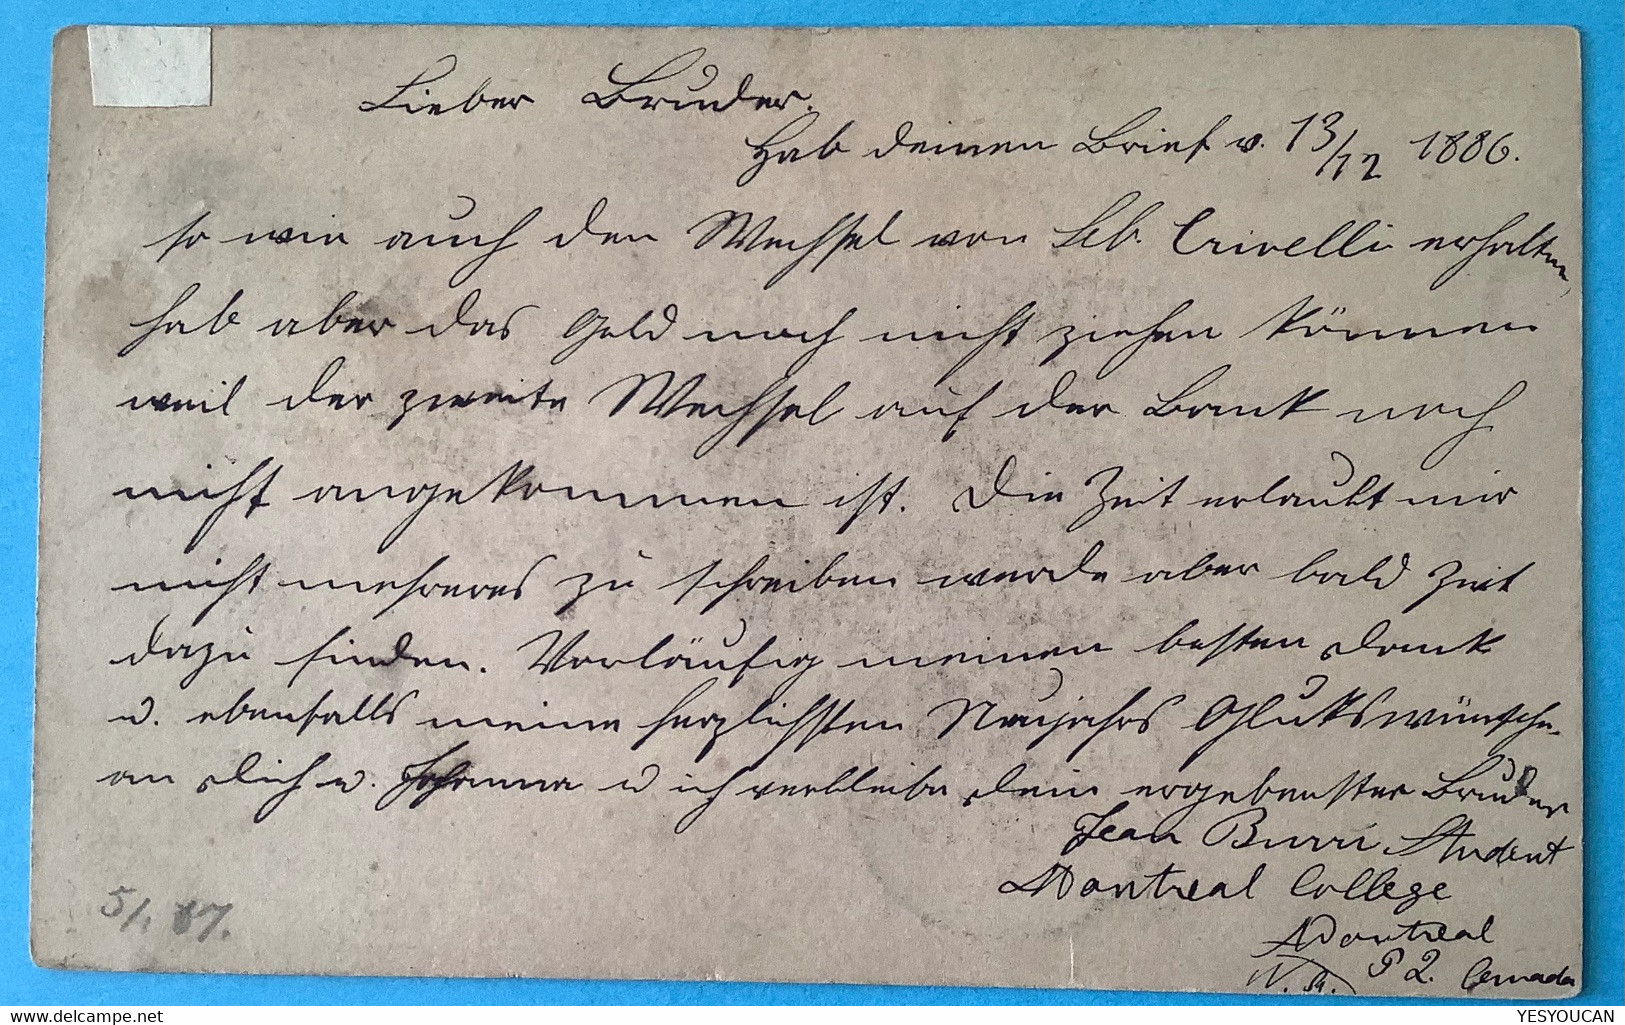 Lieber Bruder.
Hab deinen Brief v. 13/12 1886.
so wie auch den Wechsel von Seb. Crivelli erhalten,
hab aber das Geld noch nicht ziehen können
weil der zweite Wechsel auf der Bank noch
nicht angekommen ist. Die Zeit erlaubt mir
nicht mehreres zu schreiben werde aber bald Zeit
dazu finden. Vorläufig meinen besten Dank
u. ebenfalls meine herzlichsten Neujahrs Glükswünsche
an Dich u. Johanna u ich verbleibe Dein ergebenster Bruder
Jean Burri Student
Montreal College
Montreal
P 2. Canada
N. A.
5/1. 87.
YESYOUCAN
delcampe.net